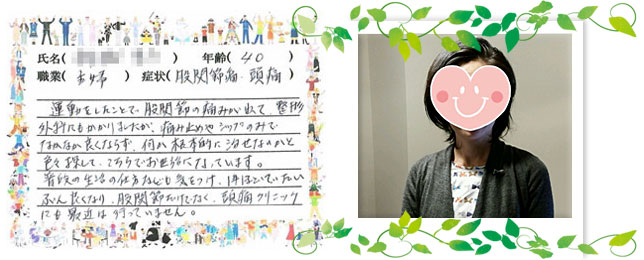 氏名( ) 年齢( 40 )
職業( 主婦 ) 症状( 股関節痛・頭痛 )
運動をしたことで、股関節の痛みが出て、整形
外科にもかかりましたが、痛み止めやシップのみで
なかなか良くならず、何か根本的に治せないかと
色々探して、こちらでお世話になっています。
普段の生活の仕方なども気をつけ、1年ほどでだいたい
ずいぶん良くなり、股関節だけでなく、頭痛クリニック
にも最近は行っていません。